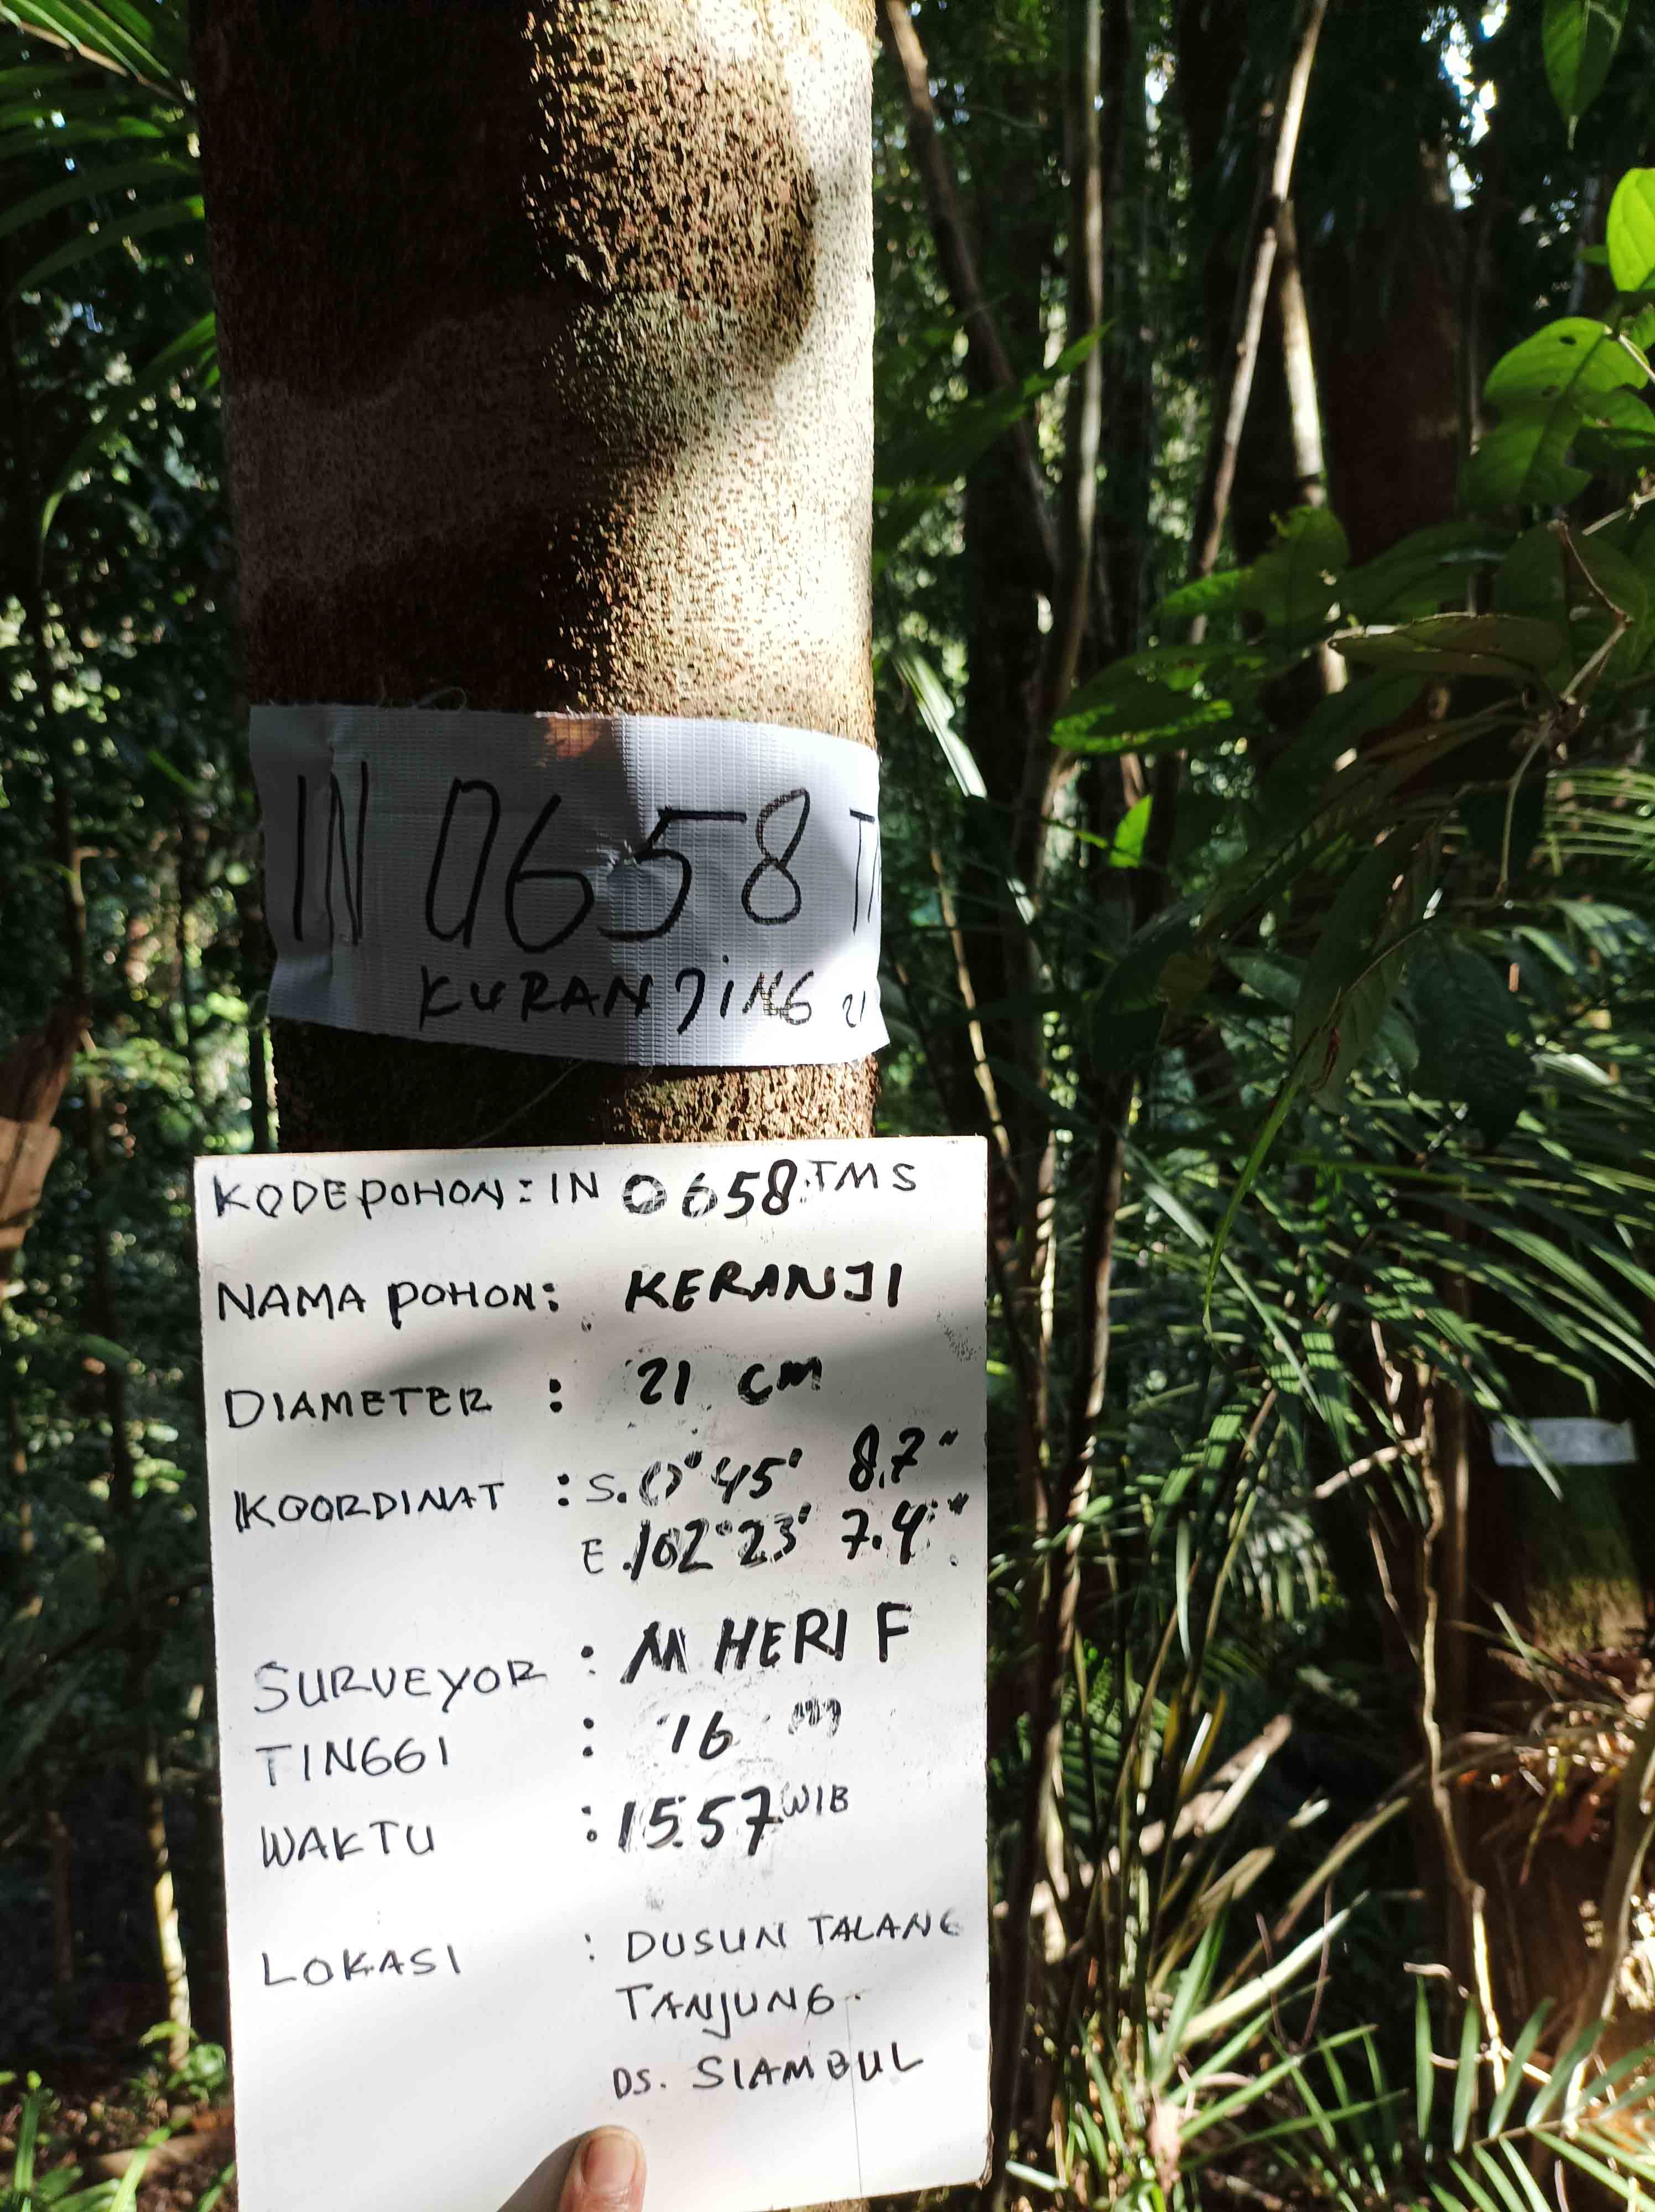 IN 0658 T
KURANJING 21
KODE POHON : IN 0658 TMS
NAMA POHON : KERANJI
DIAMETER : 21 CM
KOORDINAT : S. 0° 45' 8.7"
E. 102° 23' 7.4"
SURVEYOR : M HERI F
TINGGI : 16 m
WAKTU : 15.57 WIB
LOKASI : DUSUN TALANG
TANJUNG
DS. SIAMBUL